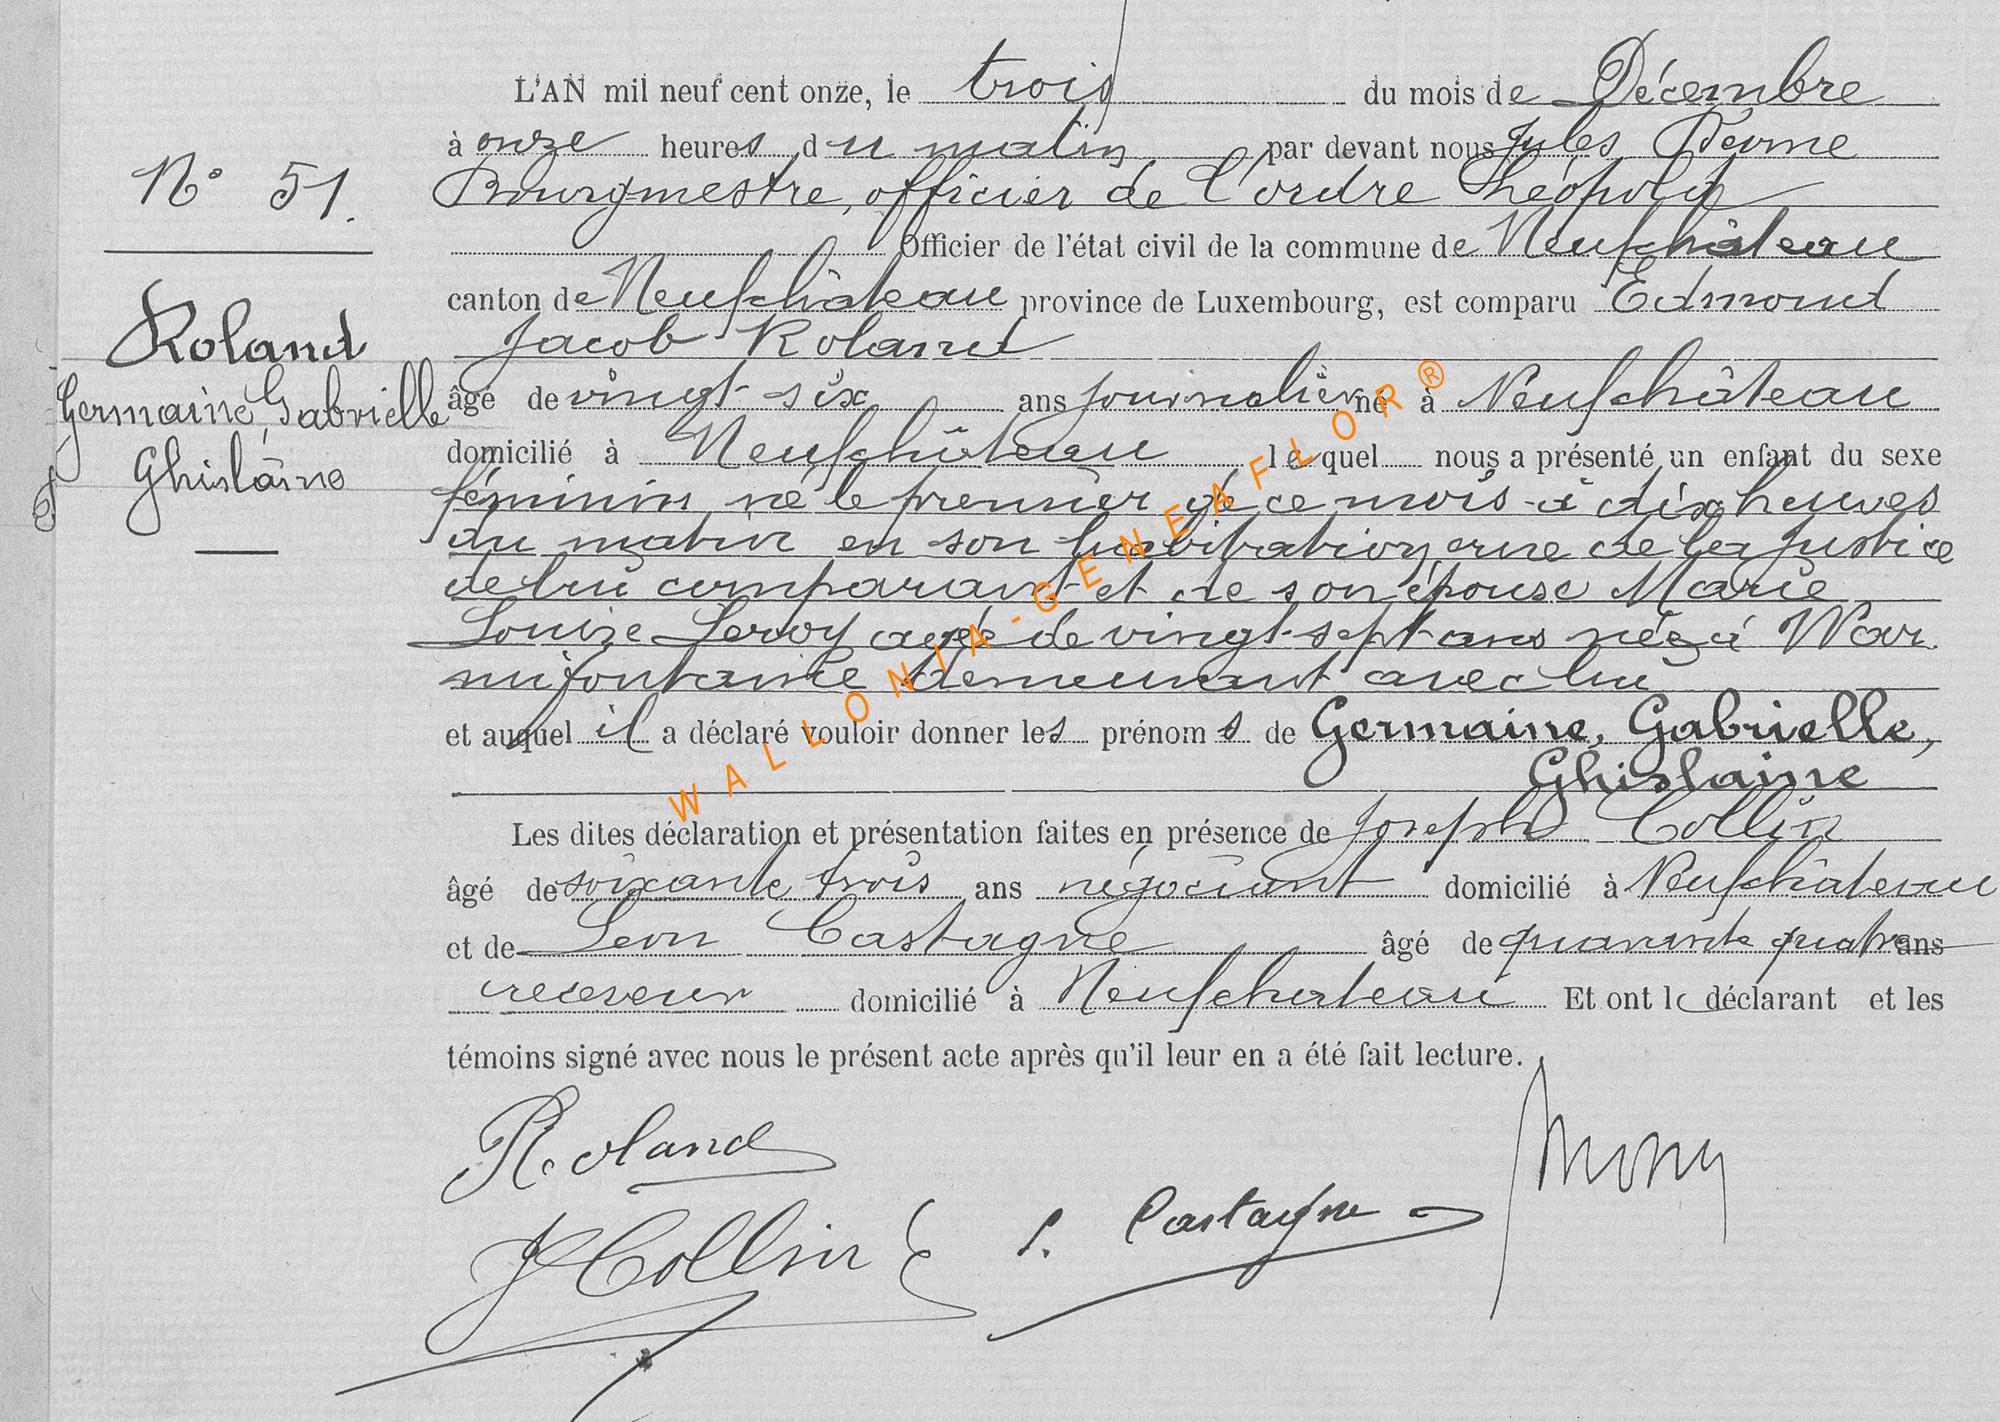 L'AN mil neuf cent onze, le trois du mois de Décembre
à onze heures du matin par devant nous Jules
Bourgmestre, officier de l'ordre Léopold
Officier de l'état civil de la commune de Neufchâteau
canton de Neufchâteau province de Luxembourg, est comparu Edmond
Jacob Roland
âgé de vingt-six ans journalier né à Neufchâteau
domicilié à Neufchâteau, lequel nous a présenté un enfant du sexe
féminin né le premier de ce mois à dix heures
du matin en son habitation, rue de la Justice
de lui comparant et de son épouse Marie
Louise Leroy agée de vingt-sept ans née à War
mifontaine demeurant avec lui
et auquel il a déclaré vouloir donner les prénoms de Germaine, Gabrielle,
Ghislaine
Les dites déclaration et présentation faites en présence de Joseph Collin
âgé de soixante trois ans négociant domicilié à Neufchâteau
et de Léon Castagne âgé de quarante quatre ans
receveur domicilié à Neufchateau Et ont le déclarant et les
témoins signé avec nous le présent acte après qu'il leur en a été fait lecture.
N° 51.
Roland
Germaine, Gabrielle
Ghislaine
Roland
J Collin
L. Castagne
WALLONIA-GENEAFLOR®